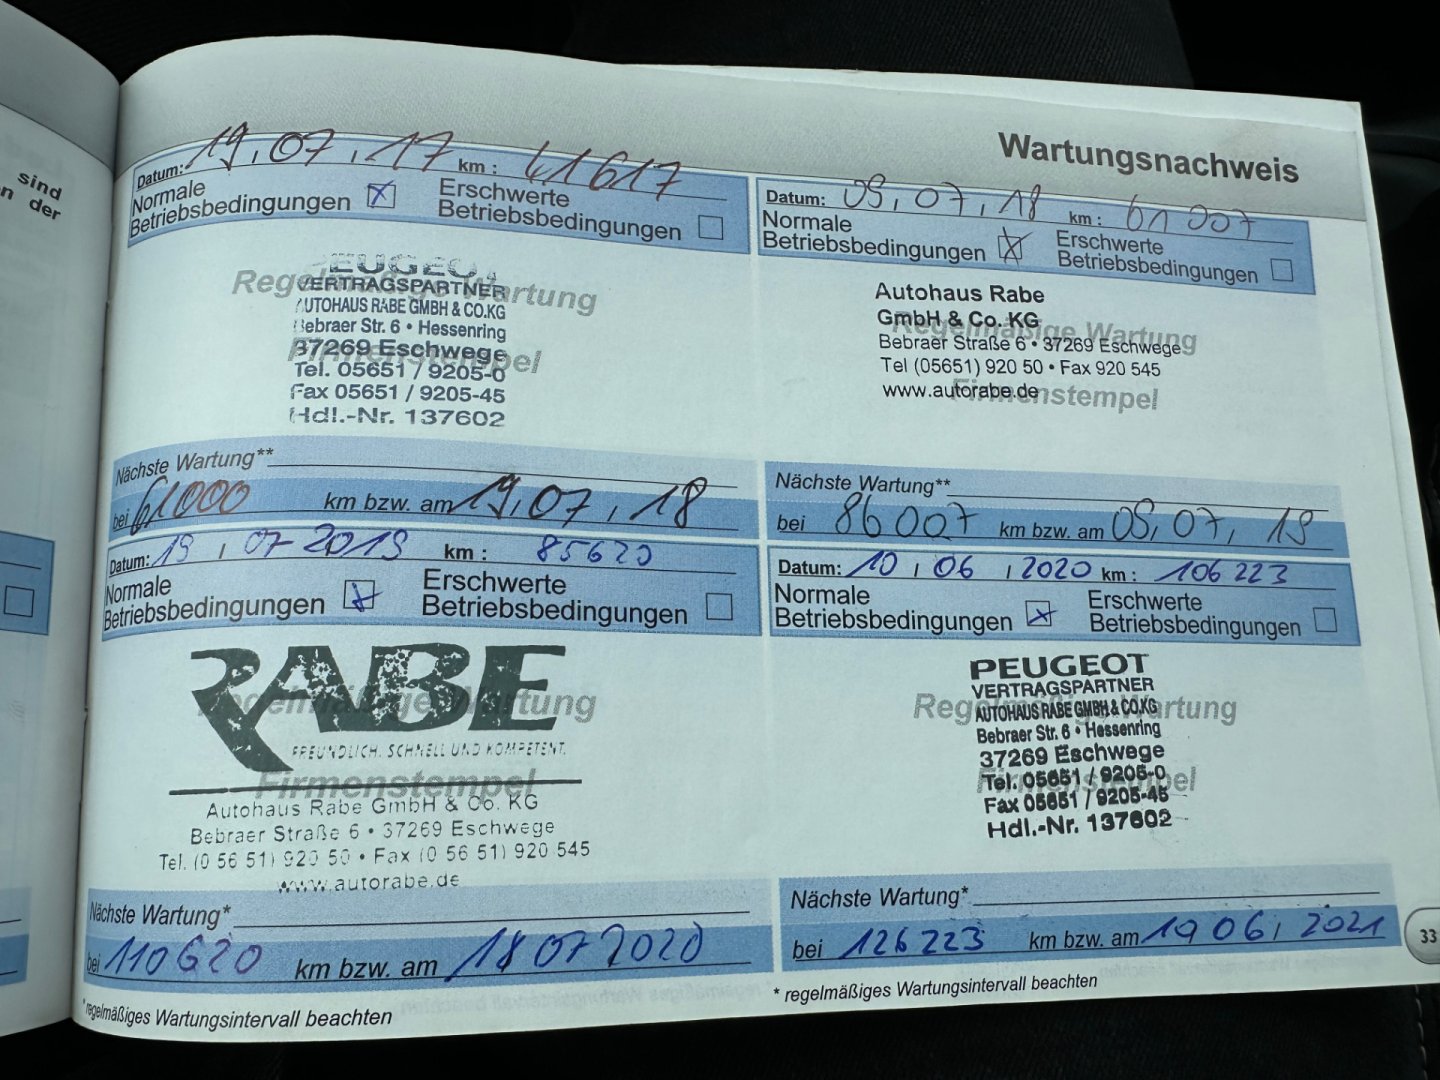 sind
n der
Wartungsnachweis
Datum: 19.07.17 km: 41617
Normale
Betriebsbedingungen
Erschwerte
Betriebsbedingungen
Regelmäßige Wartung
Firmenstempel
PEUGEOT
VERTRAGSPARTNER
AUTOHAUS RABE GMBH & CO.KG
Bebraer Str. 6 • Hessenring
37269 Eschwege
Tel. 05651 / 9205-0
Fax 05651 / 9205-45
Hdl.-Nr. 137602
Nächste Wartung**
bei 61000 km bzw. am 19,07,18
Datum: 09,07,18 km: 61007
Normale
Betriebsbedingungen
Erschwerte
Betriebsbedingungen
Regelmäßige Wartung
Firmenstempel
Autohaus Rabe
GmbH & Co. KG
Bebraer Straße 6 • 37269 Eschwege
Tel (05651) 920 50 • Fax 920 545
www.autorabe.de
Nächste Wartung**
bei 86007 km bzw. am 09,07,19
Datum: 19,07 2019 km: 85620
Normale
Betriebsbedingungen
Erschwerte
Betriebsbedingungen
Regelmäßige Wartung
Firmenstempel
RABE
FREUNDLICH. SCHNELL UND KOMPETENT.
Autohaus Rabe GmbH & Co. KG
Bebraer Straße 6 • 37269 Eschwege
Tel. (0 56 51) 920 50 • Fax (0 56 51) 920 545
www.autorabe.de
Nächste Wartung*
bei 110620 km bzw. am 18 07 2020
* regelmäßiges Wartungsintervall beachten
Datum: 10,06,2020 km: 106 223
Normale
Betriebsbedingungen
Erschwerte
Betriebsbedingungen
Regelmäßige Wartung
Firmenstempel
PEUGEOT
VERTRAGSPARTNER
AUTOHAUS RABE GMBH & CO.KG
Bebraer Str. 6 • Hessenring
37269 Eschwege
Tel. 05651 / 9205-0
Fax 05651 / 9205-45
Hdl.-Nr. 137602
Nächste Wartung*
bei 126 223 km bzw. am 10 06, 2021
* regelmäßiges Wartungsintervall beachten
33